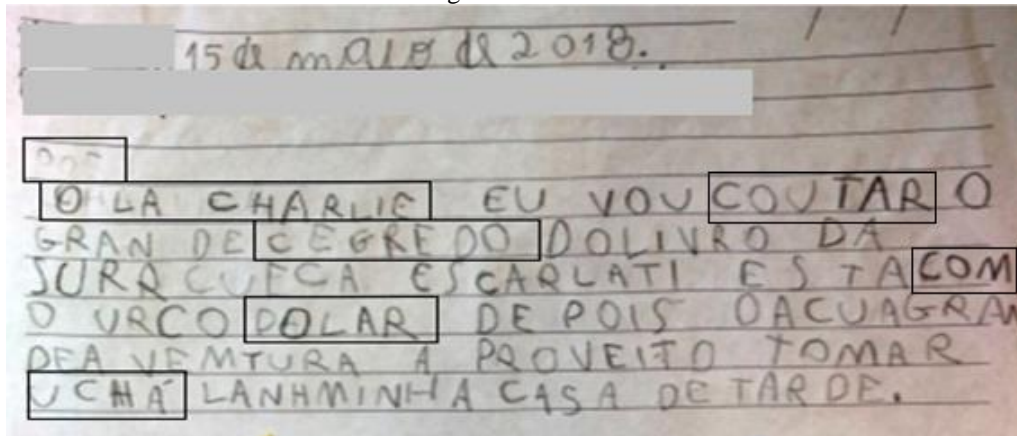 15 de maio de 2018.
OLA CHARLIE EU VOU COUTAR O
GRAN DE CEGREDO DOLIVRO DA
SURRCUECA ESCARLATI ESTA COM
O URCO DOLAR DE POIS OACUAGRAN
DEA VEMTURA A PROVEITO TOMAR
UCHÁ LANHMINHA CASA DE TARDE.